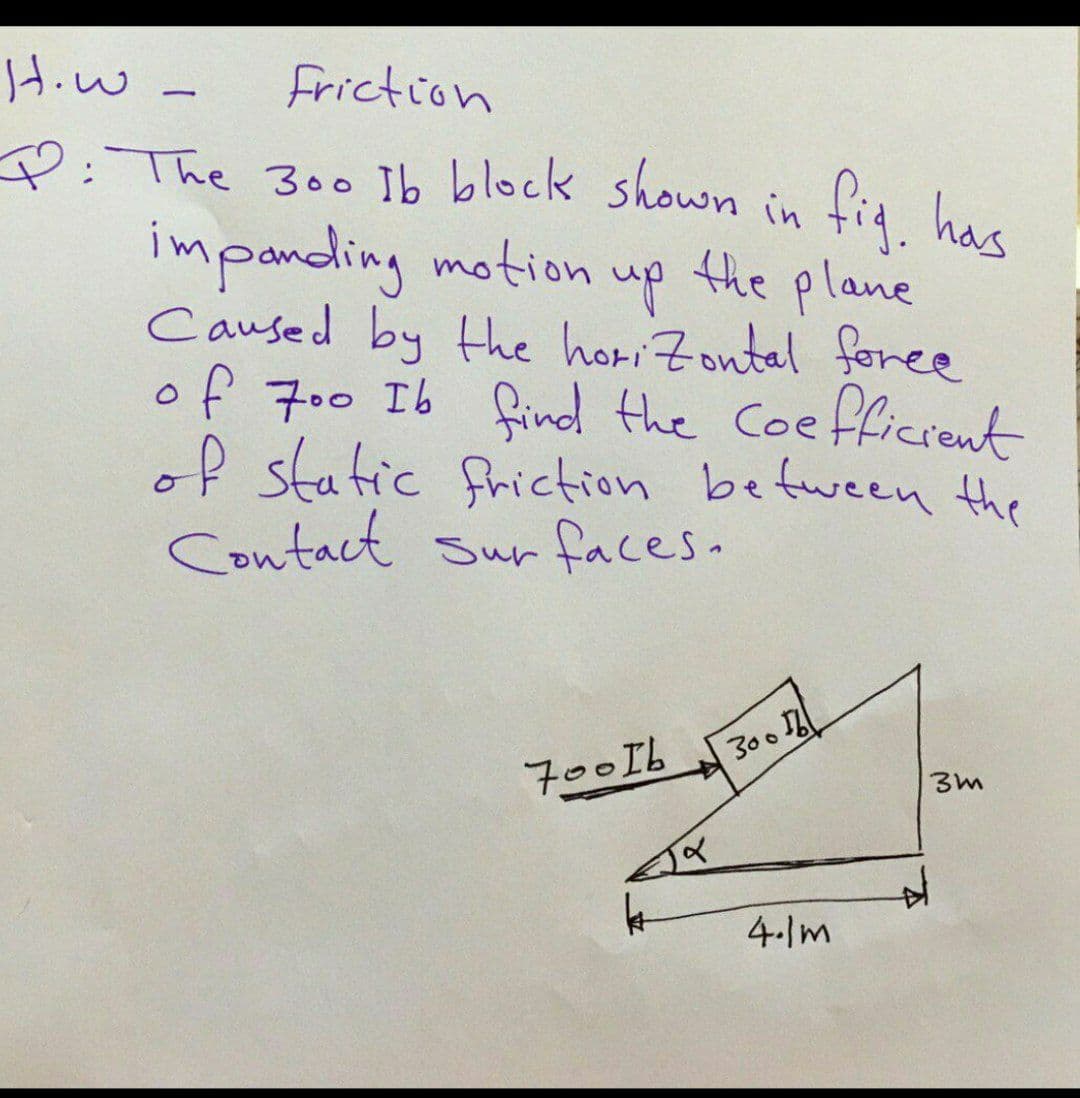 H.w - Friction
Q: The 300 Ib block shown in fig. has
impanding motion up the plane
Caused by the horizontal force
of 700 Ib find the Coefficient
of static friction between the
Contact surfaces.
700Ib
300 Ib
3m
α
4.1m